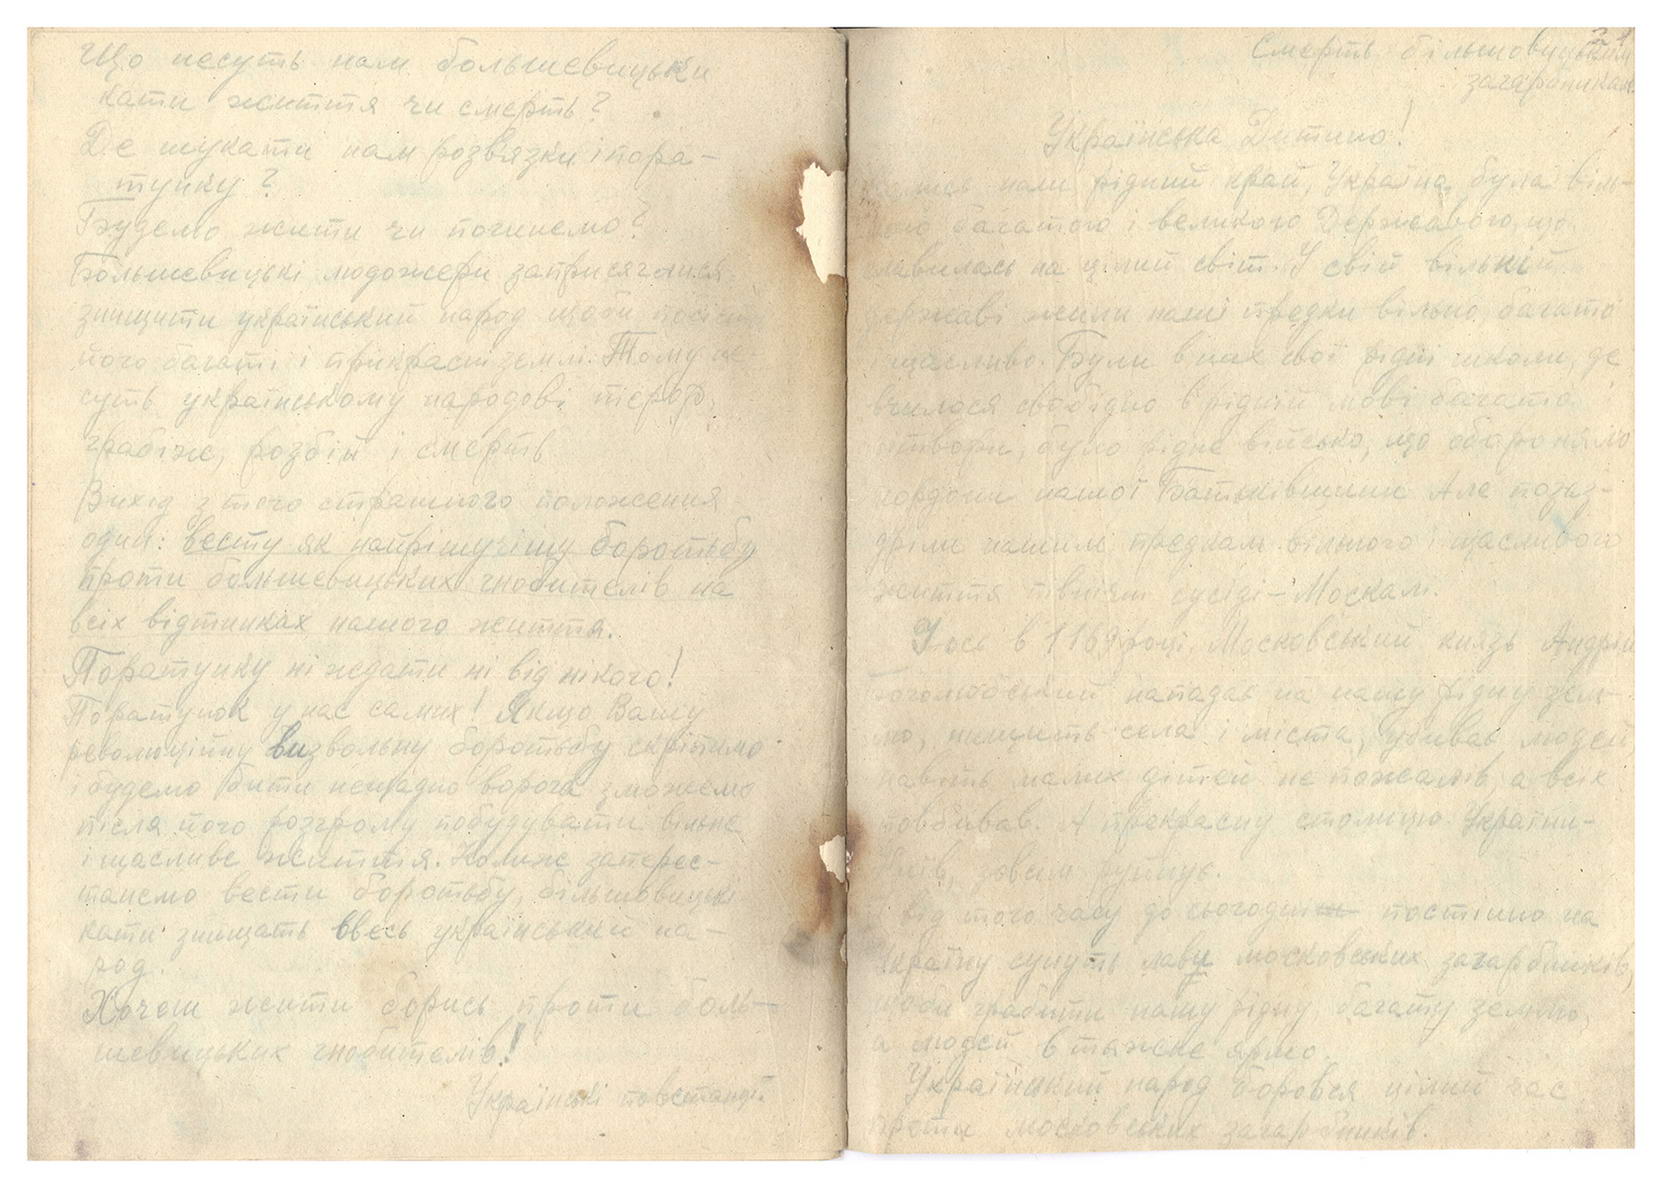 Що несуть нам большевицьки
кати життя чи смерть?
Де шукати нам розвязки і пора-
тунку?
Будемо жити чи погинемо?
Большевицькі людожери заприсяглися
знищити український народ щоби посісти
його багаті і прикрасні землі. Тому не-
суть українському народові терор,
грабіж, розбій і смерть
Вихід з того страшного положення
один: вести як найрішучішу боротьбу
проти большевицьких гнобителів на
всіх відтинках нашого життя.
Поратунку ні ждати ні від нікого!
Поратунок у нас самих! Якщо Вашу
революційну визвольну боротьбу скріпимо
і будемо бити нещадно ворога зможемо
після його розгрому побудувати вільне
і щасливе життя. Колиж заперес-
танемо вести боротьбу, більшовицькі
кати знищать ввесь український на-
род.
Хочеш жити борись проти боль-
шевицьких гнобителів!
Українські повстанці.
Смерть більшовицьким
загарбникам
Українська Дитино!
наш рідний край, Україна була віль-
ною багатою і великою Державою, що
славилась на цілий світ. У свій вільній
державі жили наші предки вільно, багато
і щасливо. Були в них свої рідні школи, де
вчилося свобідно в рідній мові багато
було рідне військо, що обороняло
кордони нашої Батьківщини Але позаз-
дріли нашим предкам вільного і щасливого
життя північні сусіди - Москалі.
І ось в 1169 році, Московський князь Андрій
Боголюбський нападає на нашу рідну зем-
лю, нищить села і міста, убиває людей
навіть малих дітей не пожалів, а всіх
повбивав. А прекрасну столицю України-
Київ, зовсім руйнує.
І від того часу до сьогодні постійно на
Україну сунуть лави московських загарбників,
щоби грабити нашу рідну, багату землю,
а людей в тяжке ярмо.
Український народ боровся цілий час
проти московських загарбників.